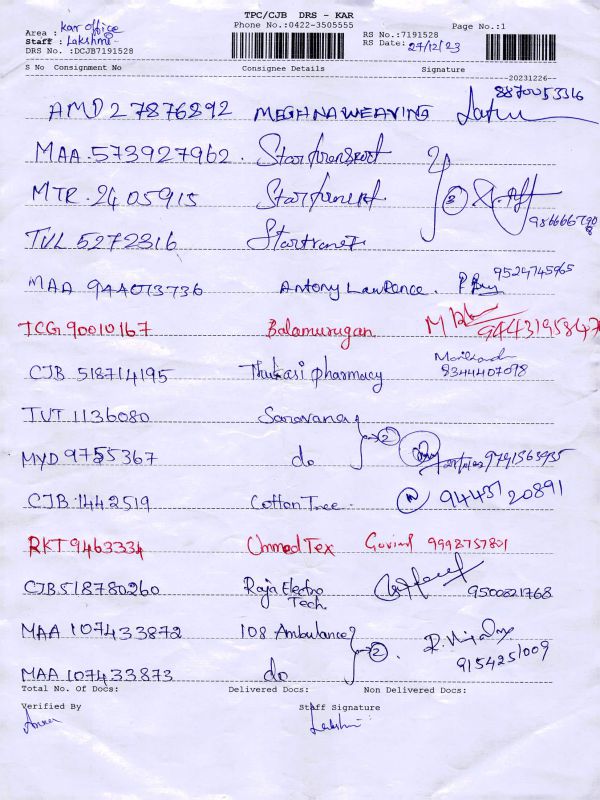 TPC/CJB DRS - KAR
Phone No.:0422-3505555 Page No.:1
Area : kar office
Staff : Lakshmi
DRS No. :DCJB7191528
RS No.:7191528
RS Date: 27/12/23
S No Consignment No Consignee Details Signature
20231226
AMD 27876292 MEGHNA WEAVING 8870053316
MAA 573927962 Startransport
MTR 2405915
TVL 5272316
MAA 944013736 Antony Lawrence. 9524745965
TCG 90010167 Balamurugan
CJB 518714195 Thulasi pharmacy 8344407098
TUT 1136080 Saravana
MYD 9755367 do 2
CJB 1442519 Cotton Tree 9443120891
RKT 9463334 Ummed Tex Govind 9998757801
CJB 518780260 Raja Electro Tech 9500821768
MAA 107433872 108 Ambulance
MAA 107433873 do 2. 9154251009
Total No. Of Docs: Delivered Docs: Non Delivered Docs:
Verified By Staff Signature
Lakshmi